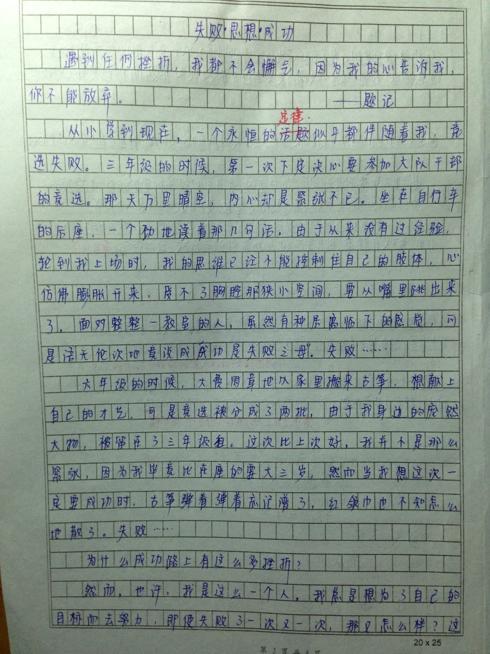 失败·思想·成功
遇到任何挫折，我都不会懈气，因为我的心告诉我，
你不能放弃。 ——题记
定律
从小学到现在，一个永恒的话题似乎都伴随着我，竞
选失败。三年级的时候，第一次下定决心要参加大队干部
的竞选。那天万里晴空，内心却是紧张不已。坐在自行车
的后座，一个劲地读着那几句话。由于从来没有过经验，
轮到我上场时，我的思维已经不能控制住自己的肢体，心
仿佛膨胀开来，受不了胸腔那狭小空间，要从嘴里跳出来
了。面对整整一教室的人，虽然有种居高临下的感觉，可
是语无伦次地竟谈成成功是失败之母。失败……
六年级的时候，大费周章地从家里搬来古筝，想献上
自己的才艺，可是竞选被分成了两批，由于我身边的庞然
大物，被留在了三年级组。这次比上次好，我并不是那么
紧张，因为我毕竟比在座的要大三岁。然而当我想这次一
定要成功时，古筝弹着弹着忘记谱了，红领巾巾不知怎么
地散了。失败……
为什么成功路上有这么多挫折？
然而，也许，我是这么一个人。我总是想为了自己的
目标而去努力，即使失败了一次又一次，那又怎么样？这
20×25